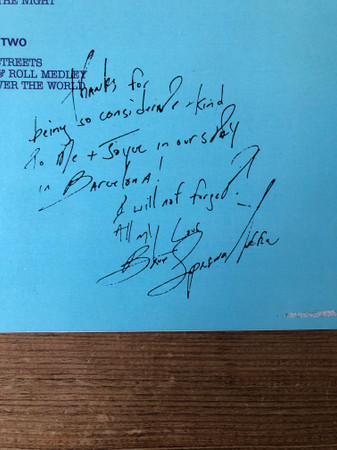 THE NIGHT
TWO
STREETS
& ROLL MEDLEY
OVER THE WORLD
Thanks for
being so considerate + kind
to Me + Joyce in our stay
in Barcelona!
I will not forget.
All my Love
Bruce